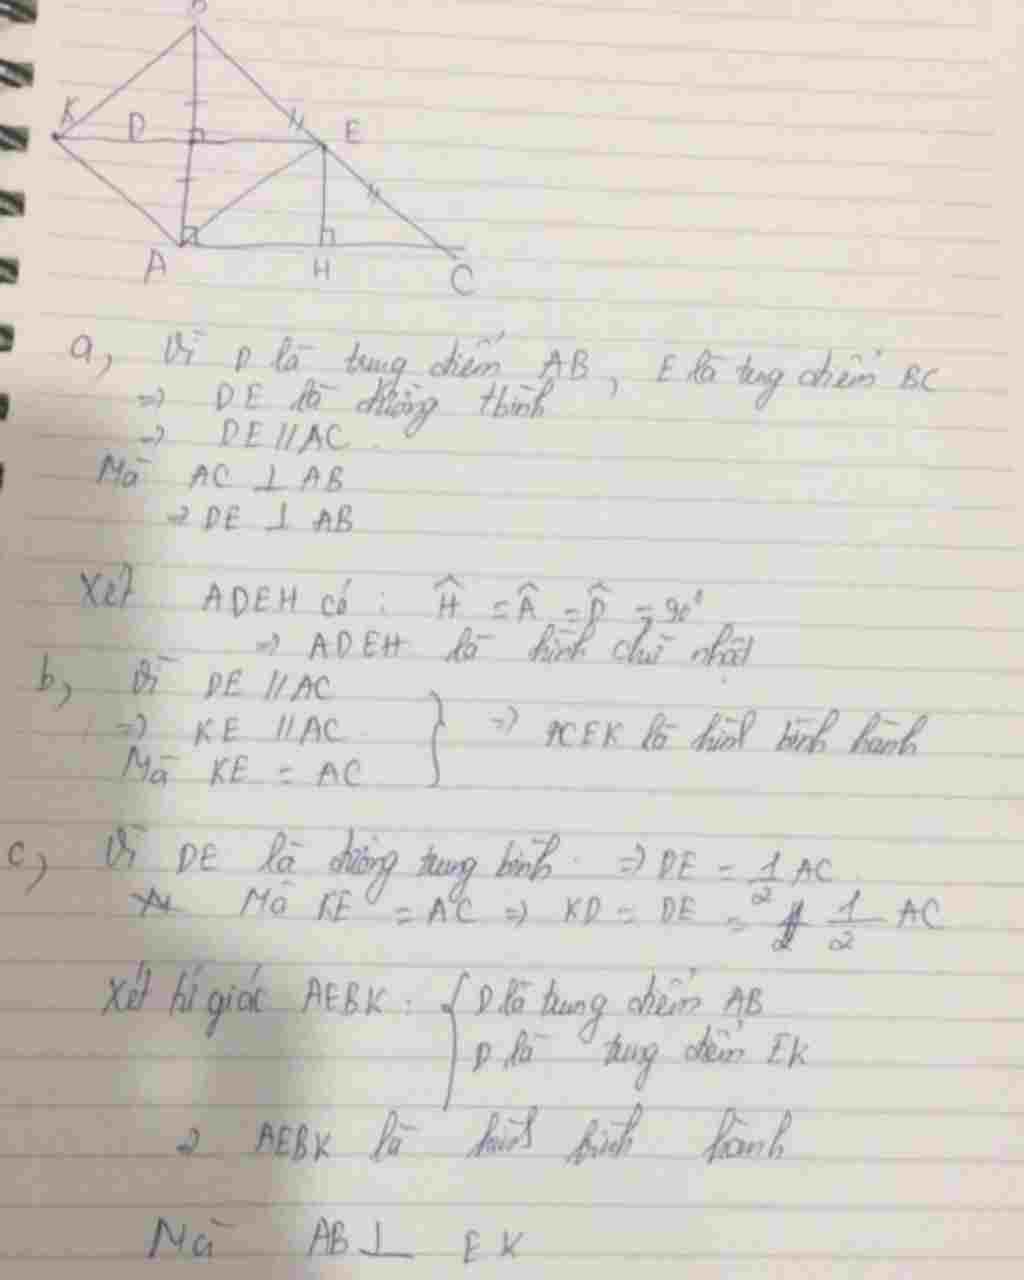 B
K D E
A H C
a, Vì D là trung điểm AB, E là tung điểm BC
=> DE là đường tbình
=> DE // AC
Mà AC ⊥ AB
=> DE ⊥ AB
Xét ADEH có : Ĥ = Â = D̂ = 90°
=> ADEH là hình chữ nhật
b, Vì DE // AC
=> KE // AC
Mà KE = AC } => ACEK là hình bình hành
c, Vì DE là đường trung bình => DE = 1/2 AC
Mà KE = AC => KD = DE = 1/2 AC
Xét tứ giác AEBK : { D là trung điểm AB
D là tung điểm EK
=> AEBK là hình bình hành
Mà AB ⊥ EK